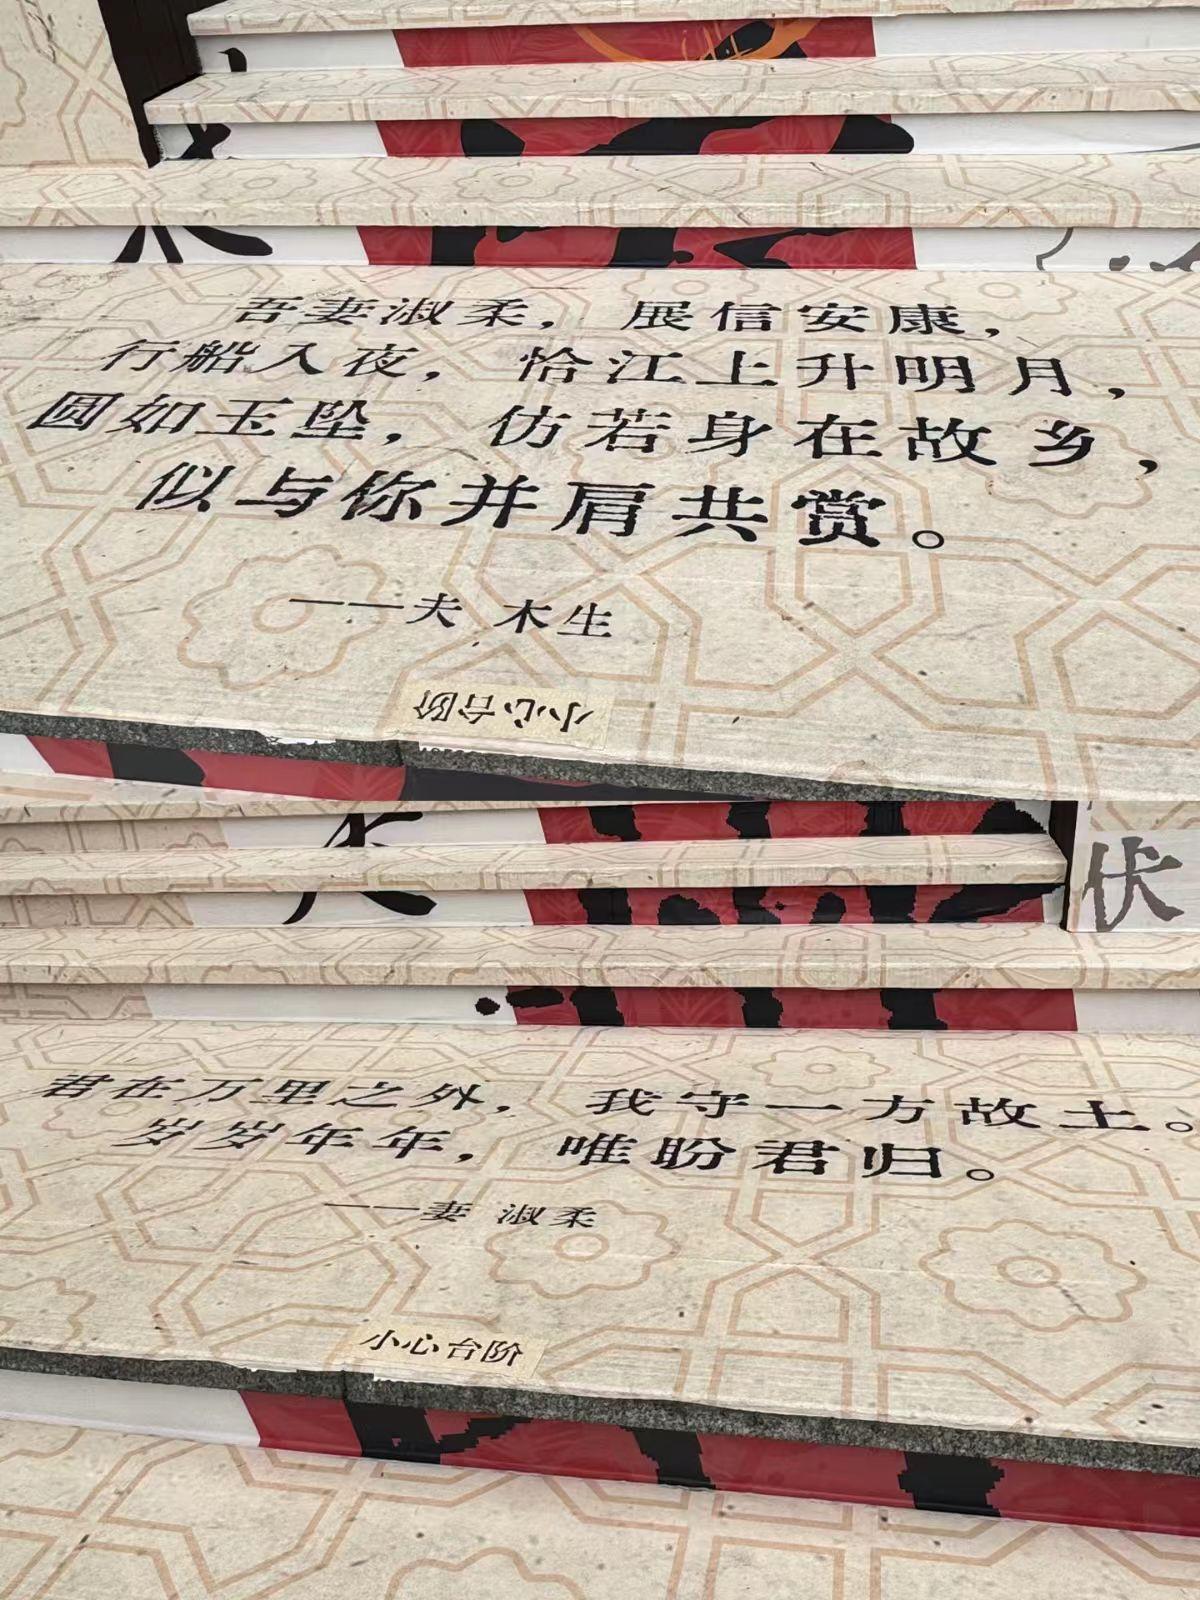 吾妻淑柔，展信安康，
行船入夜，恰江上升明月，
圆如玉坠，仿若身在故乡，
似与你并肩共赏。
——夫 木生
小心台阶
伏
君在万里之外，我守一方故土。
岁岁年年，唯盼君归。
——妻 淑柔
小心台阶